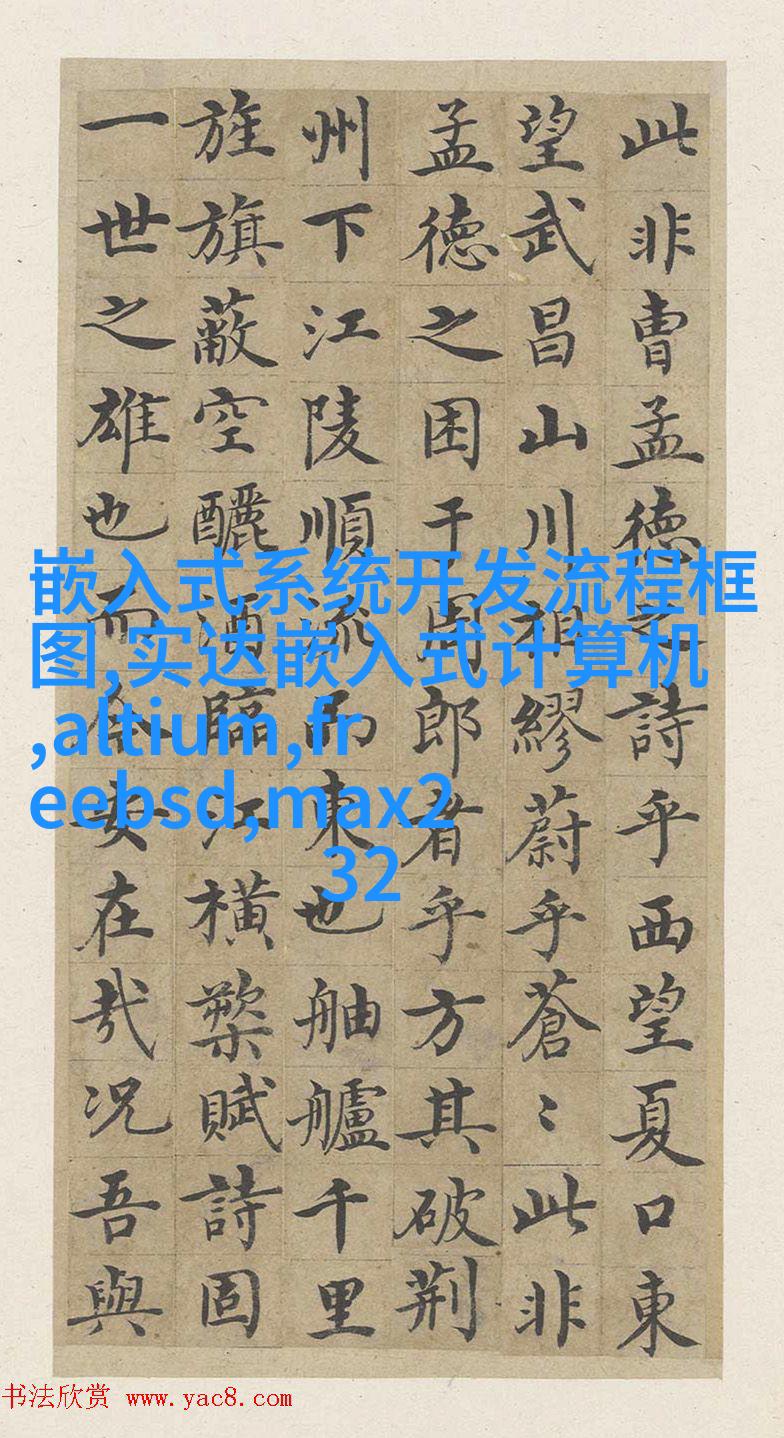 此非曺孟德之詩乎西望夏口東
望武昌山川相繆蔚乎蒼〻此非
孟德之困于周郎者乎方其破荆
州下江陵順流而東也舳艫千里
旌旗蔽空釃酒臨江横槊賦詩固
一世之雄也而今安在哉况吾與
嵌入式系统开发流程框
图,实达嵌入式计算机
,altium,fr
eebsd,max2
32
书法欣赏 www.yac8.com